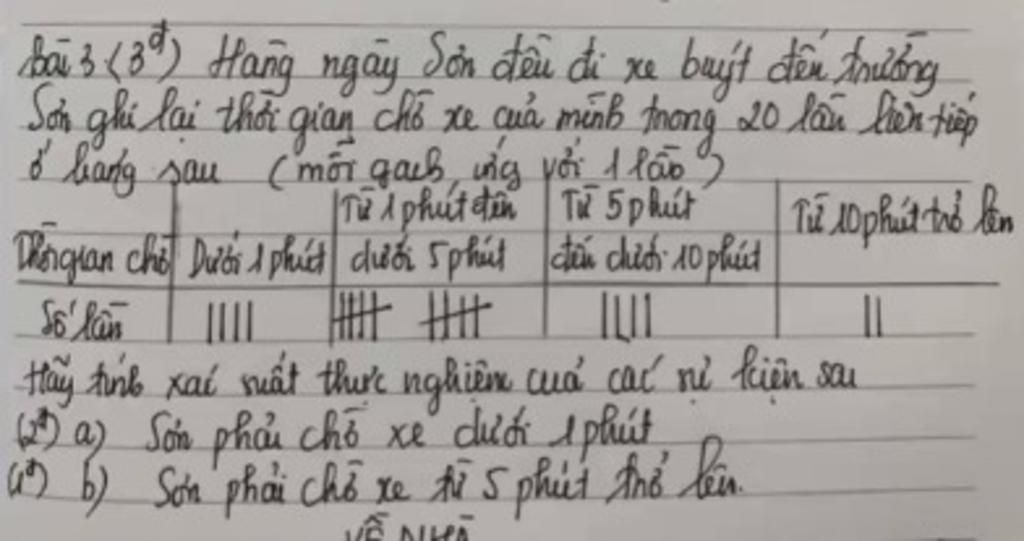 bài 3 (3đ) Hàng ngày Sơn đều đi xe buýt đến trường
Sơn ghi lại thời gian chờ xe của mình trong 20 lần liên tiếp
ở bảng sau (mỗi gạch ứng với 1 lần)
Từ 1 phút đến Từ 5 phút Từ 10 phút trở lên
Thời gian chờ Dưới 1 phút dưới 5 phút đến dưới 10 phút
Số lần |||| |||| |||| |||| ||
Hãy tính xác suất thực nghiệm của các sự kiện sau
(2đ) a) Sơn phải chờ xe dưới 1 phút
(1đ) b) Sơn phải chờ xe từ 5 phút trở lên.
VỀ NHÀ